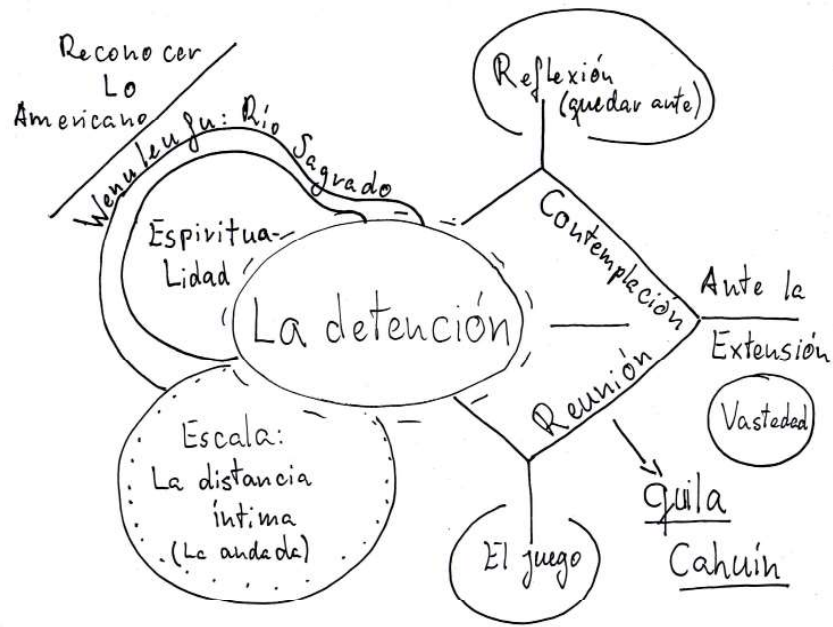 Reconocer
Lo
Americano
Wenuleufu: Río Sagrado
Espiritua-
Lidad
La detención
Escala:
La distancia
íntima
(La andada)
Reflexión
(quedar ante)
Contemplación
Reunión
Ante la
Extensión
Vastedad
quila
Cahuín
El juego